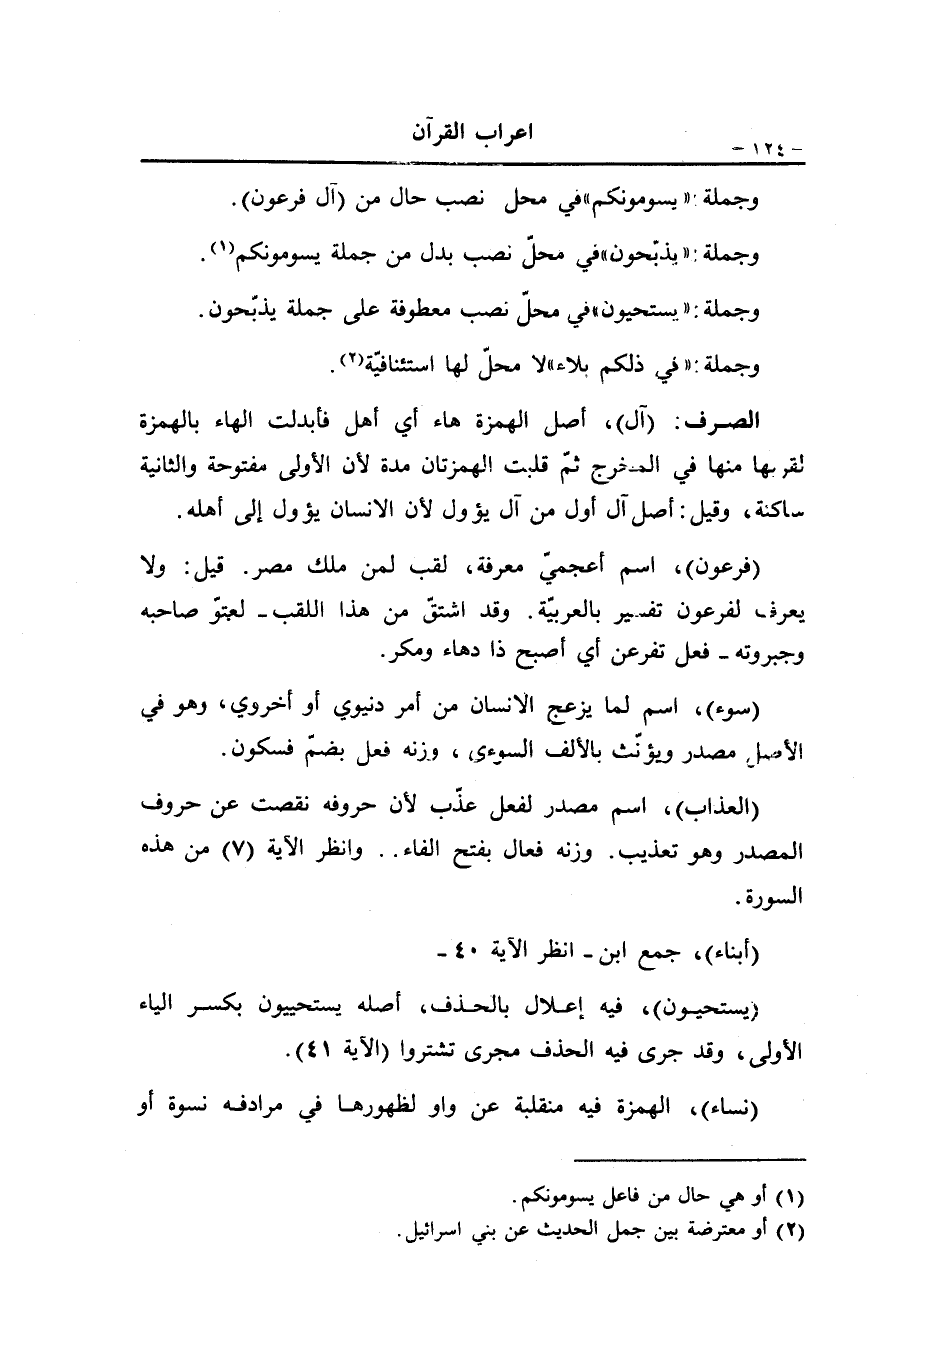 اعراب القرآن
- ١٢٤ -
وجملة : « يسومونكم » في محل نصب حال من (آل فرعون) .
وجملة : « يذبّحون » في محلّ نصب بدل من جملة يسومونكم(١) .
وجملة : « يستحيون » في محلّ نصب معطوفة على جملة يذبّحون .
وجملة : « في ذلكم بلاء » لا محلّ لها استئنافيّة(٢) .
الصرف : (آل)، أصل الهمزة هاء أي أهل فأبدلت الهاء بالهمزة
لقربها منها في المخرج ثمّ قلبت الهمزتان مدة لأن الأولى مفتوحة والثانية
ساكنة، وقيل : أصل آل أول من آل يؤول لأن الانسان يؤول إلى أهله .
(فرعون)، اسم أعجميّ معرفة، لقب لمن ملك مصر . قيل : ولا
يعرف لفرعون تفسير بالعربيّة . وقد اشتقّ من هذا اللقب - لعتوّ صاحبه
وجبروته - فعل تفرعن أي أصبح ذا دهاء ومكر .
(سوء)، اسم لما يزعج الانسان من أمر دنيوي أو أخروي، وهو في
الأصل مصدر ويؤنّث بالألف السوءى ، وزنه فعل بضمّ فسكون .
(العذاب)، اسم مصدر لفعل عذّب لأن حروفه نقصت عن حروف
المصدر وهو تعذيب . وزنه فعال بفتح الفاء . . وانظر الآية (٧) من هذه
السورة .
(أبناء)، جمع ابن - انظر الآية ٤٠ -
(يستحيون)، فيه إعلال بالحذف، أصله يستحييون بكسر الياء
الأولى، وقد جرى فيه الحذف مجرى تشتروا (الآية ٤١) .
(نساء)، الهمزة فيه منقلبة عن واو لظهورها في مرادفه نسوة أو
(١) أو هي حال من فاعل يسومونكم .
(٢) أو معترضة بين جمل الحديث عن بني اسرائيل .